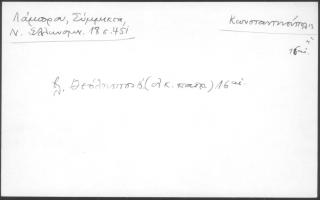 Λάμπρου, Σύμμικτα,
Ν. Ελληνομν. 18 σ. 451
Κωνσταντινούπολις
16 αἰ.
βλ. Θεόληπτος β' (οἰκ. πατρ.) 16 αἰ